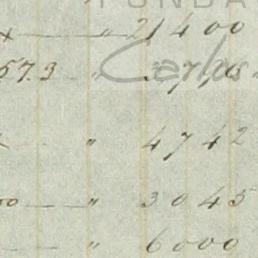 FUNDA
x — " 21400
57.3 " Carlos
" 4742
00 — " 3045
— " 6000